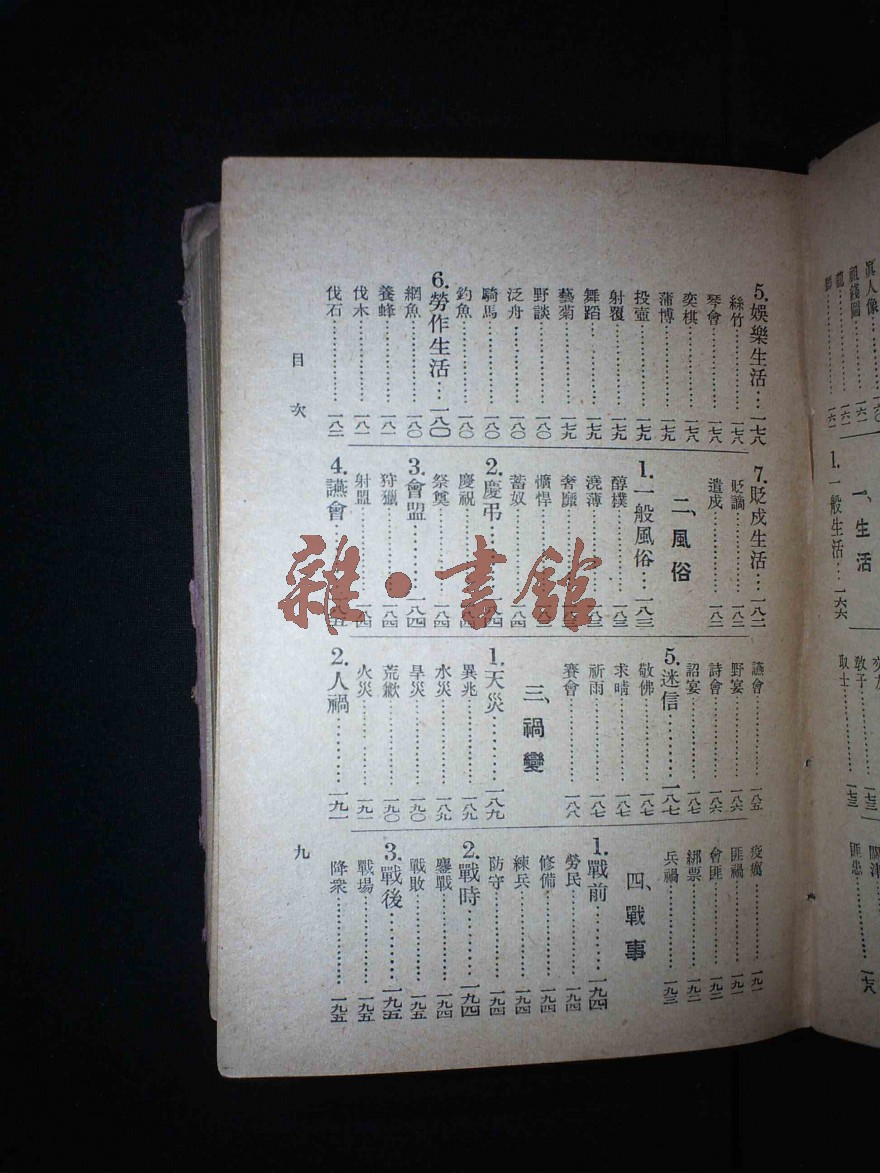 5.娛樂生活…一七八
絲竹…一七八
琴會…一七八
奕棋…一七八
蒲博…一七九
投壺…一七九
射覆…一七九
舞蹈…一七九
藝菊…一七九
野談…一八〇
泛舟…一八〇
騎馬…一八〇
釣魚…一八〇
6.勞作生活…一八〇
網魚…一八〇
養蜂…一八一
伐木…一八一
伐石…一八二
7.貶戍生活…一八二
貶謫…一八二
遣戍…一八二
二、風俗
1.一般風俗…一八三
醇樸…一八三
澆薄…一八三
奢靡
獷悍
蓄奴…一八四
2.慶弔
慶祝…一八四
祭奠…一八四
3.會盟…一八四
狩獵…一八四
射盟…一八四
4.讌會
讌會…一八五
野宴…一八六
詩會…一八六
詔宴…一八七
5.迷信…一八七
敬佛…一八七
求晴…一八七
祈雨…一八七
賽會…一八八
三、禍變
1.天災…一八九
異兆…一八九
水災…一八九
旱災…一九〇
荒歉…一九〇
火災…一九一
2.人禍…一九一
疫癘…一九一
匪禍…一九一
會匪…一九二
綁票…一九二
兵禍…一九三
四、戰事
1.戰前…一九四
勞民…一九四
修備…一九四
練兵…一九四
防守…一九四
2.戰時…一九四
鏖戰…一九四
戰敗…一九五
3.戰後…一九五
戰場…一九五
降衆…一九五
目次
九
一、生活
1.一般生活…一六六
教子…一七三
取士…一七三
匪患…一七八
雜·書館